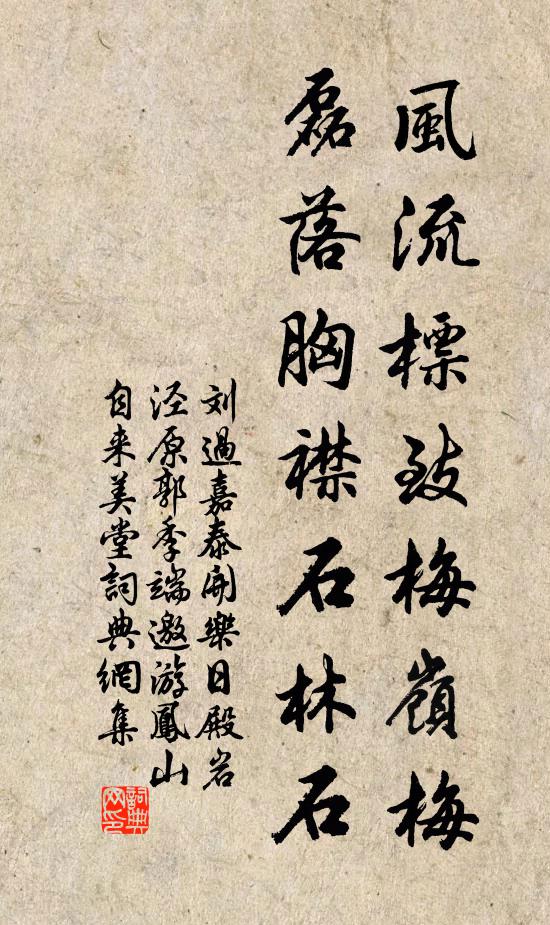 風流標致梅嶺梅
磊落胸襟石林石
刘過嘉泰開樂日殿岩
泾原郭季端邀游鳳山
自来美堂詞典網集
詞典網印